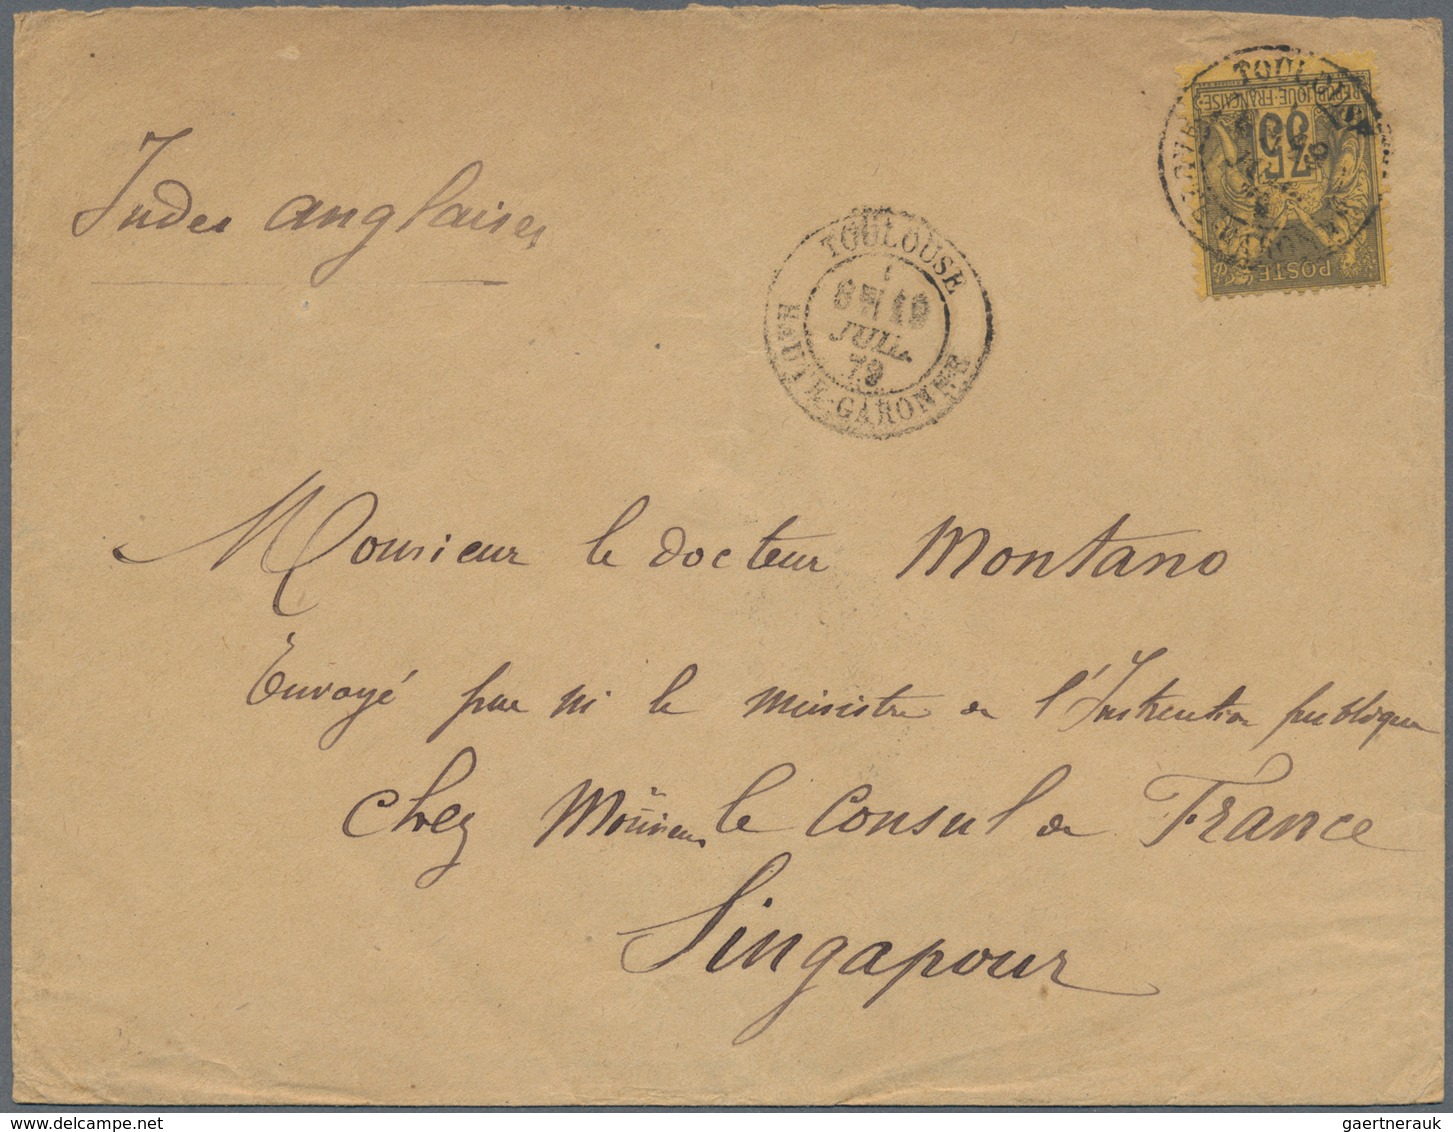 Indes anglaises
TOULOUSE
REPUBLIQUE FRANÇAISE
75
POSTE
TOULOUSE
6E 19
JUIL.
79
HAUTE-GARONNE
Monsieur le docteur Montano
Envoyé par Mr le ministre de l'Instruction publique
Chez Monsieur le Consul de France
Singapour
gaertnerauk